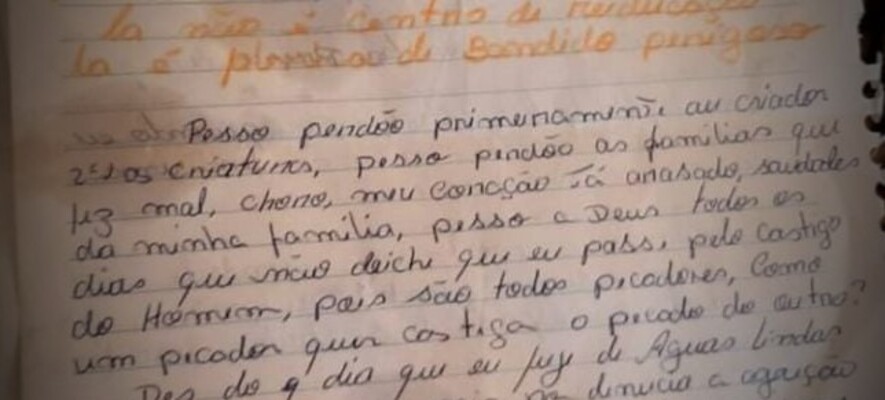 la não é centro de reeducação
la é plantrao de Bandido perigoso
Pesso perdão primeramente au criador
2º as criaturas, pesso perdão as familias que
fiz mal, choro, meu coração tá arrasado, saudades
da minha familia, pesso a Deus todos os
dias que não deiche que eu pass, pelo castigo
do Homem, pois são todos picadores, Como
um picador quer castiga o picado do outro?
Des do 9 dia que eu fuji de Águas Lindas
dinucia a